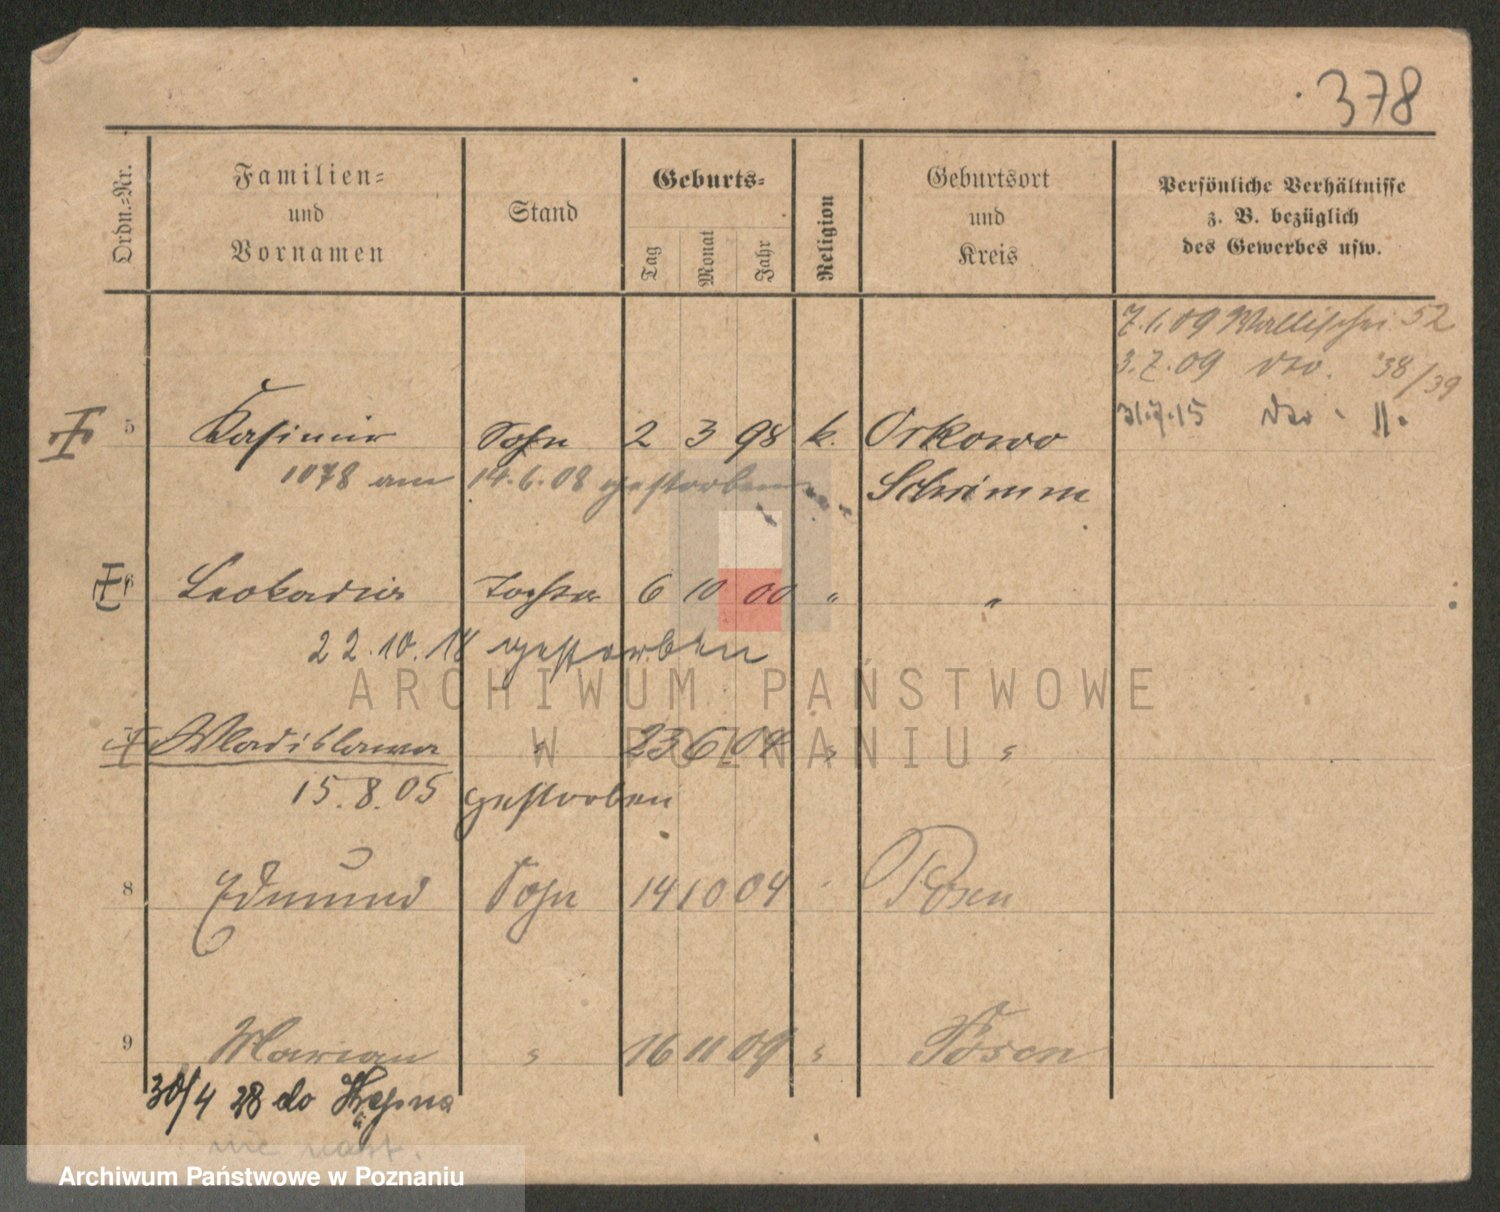 378
Ordn.-Nr.
Familien-
und
Vornamen
Stand
Geburts-
Tag
Monat
Jahr
Religion
Geburtsort
und
Kreis
Persönliche Verhältnisse
z. B. bezüglich
des Gewerbes usw.
7.1.09 Wallischei 52
3.7.09 dto. 38/39
31.7.15 dto. 11.
5 Kasimir Sohn 2 3 98 k. Orkowo
1078 am 14.6.08 gestorben Schrimm
6 Leokadia Tochter 6 10 00 " "
22.10.18 gestorben
Wladislawa " 23 6 04 " "
15.8.05 gestorben
8 Edmund Sohn 14 10 04 Posen
9 Marian " 16 11 09 " Posen
30/4 28 do
ARCHIWUM PAŃSTWOWE
W POZNANIU
Archiwum Państwowe w Poznaniu